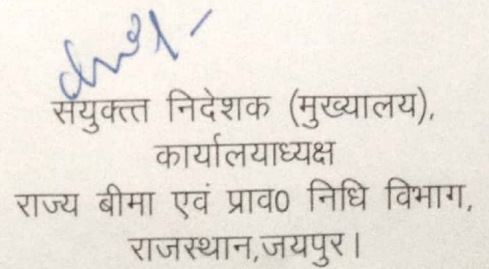 संयुक्त्त निदेशक (मुख्यालय),
कार्यालयाध्यक्ष
राज्य बीमा एवं प्राव0 निधि विभाग,
राजस्थान,जयपुर।